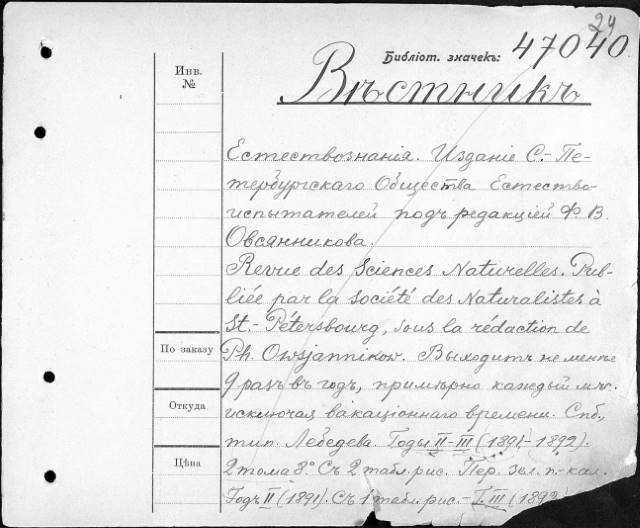 24
Библіот. значекъ: 47040.
Инв.
№
Вѣстникъ
Естествознанія. Изданіе С.-Пе-
тербургскаго Общества Естество-
испытателей подъ редакціей Ф. В.
Овсянникова.
Revue des Sciences Naturelles. Pub-
liée par la société des Naturalistes à
St.-Pétersbourg, sous la rédaction de
По заказу
Ph. Owsjannikow. Выходитъ не менѣе
9 разъ въ годъ, примѣрно каждый м-ц.
Откуда
исключая вакаціоннаго времени. Спб.,
тип. Лебедева. Годы II-III (1891-1892).
Цѣна
2 тома 8° Съ 2 табл. рис. Пер. зел. п.-кал.
Годъ II (1891). Съ 1 табл. рис. - III (1892